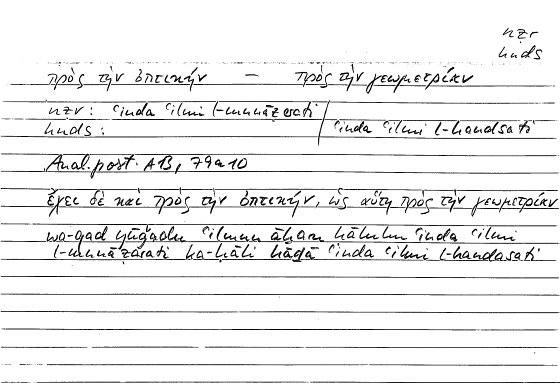 nzr
hnds
πρὸς τὴν ὀπτικήν — πρὸς τὴν γεωμετρίαν
nzr: ʿinda ʿilmi l-munāẓarati /
hnds: ʿinda ʿilmi l-handsati
Anal. post. A13, 79a10
ἔχει δὲ καὶ πρὸς τὴν ὀπτικήν, ὡς αὕτη πρὸς τὴν γεωμετρίαν
wa-qad yūǧadu ʿilmun āḫaru ḥāluhu ʿinda ʿilmi
l-munāẓarati ka-ḥāli hāḏā ʿinda ʿilmi l-handasati